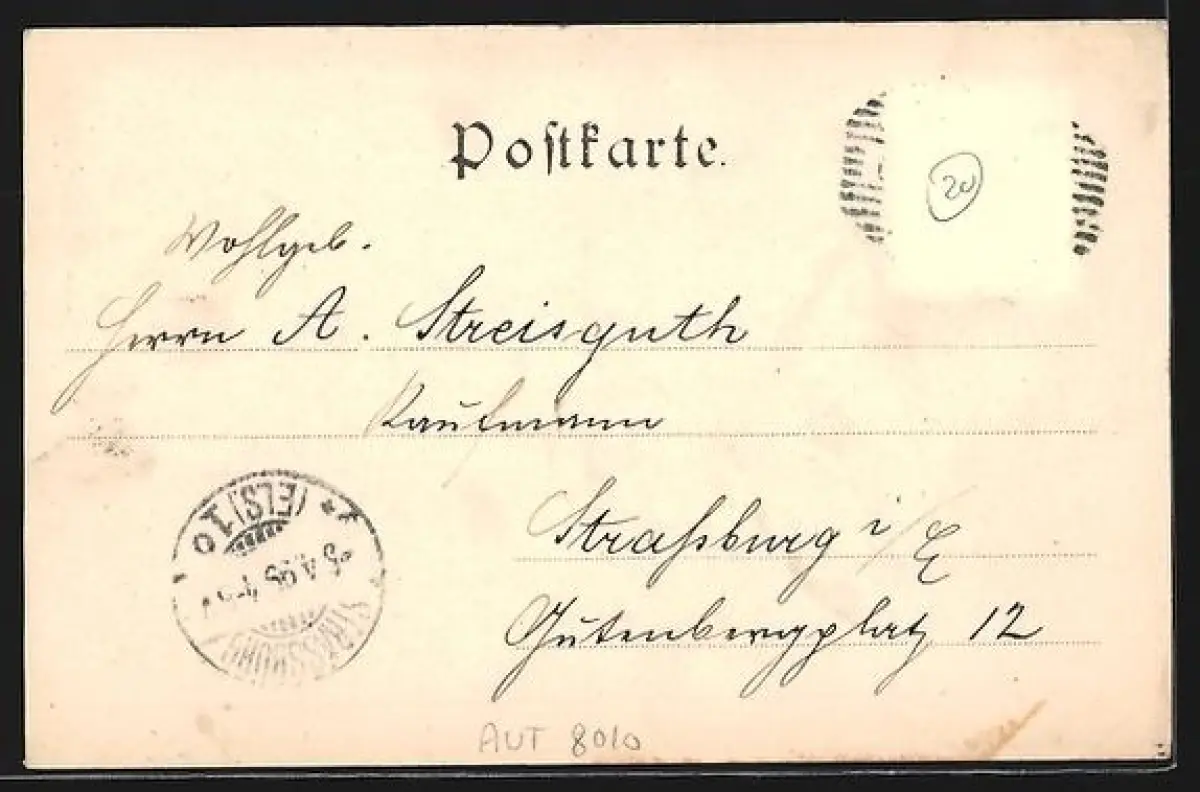 Postkarte.
20
Wohlgeb.
Herrn A. Streisguth
Kaufmann
Straßburg i/E
Gutenbergplatz 12
STRASSBURG
(ELS) 1
AUT 8010